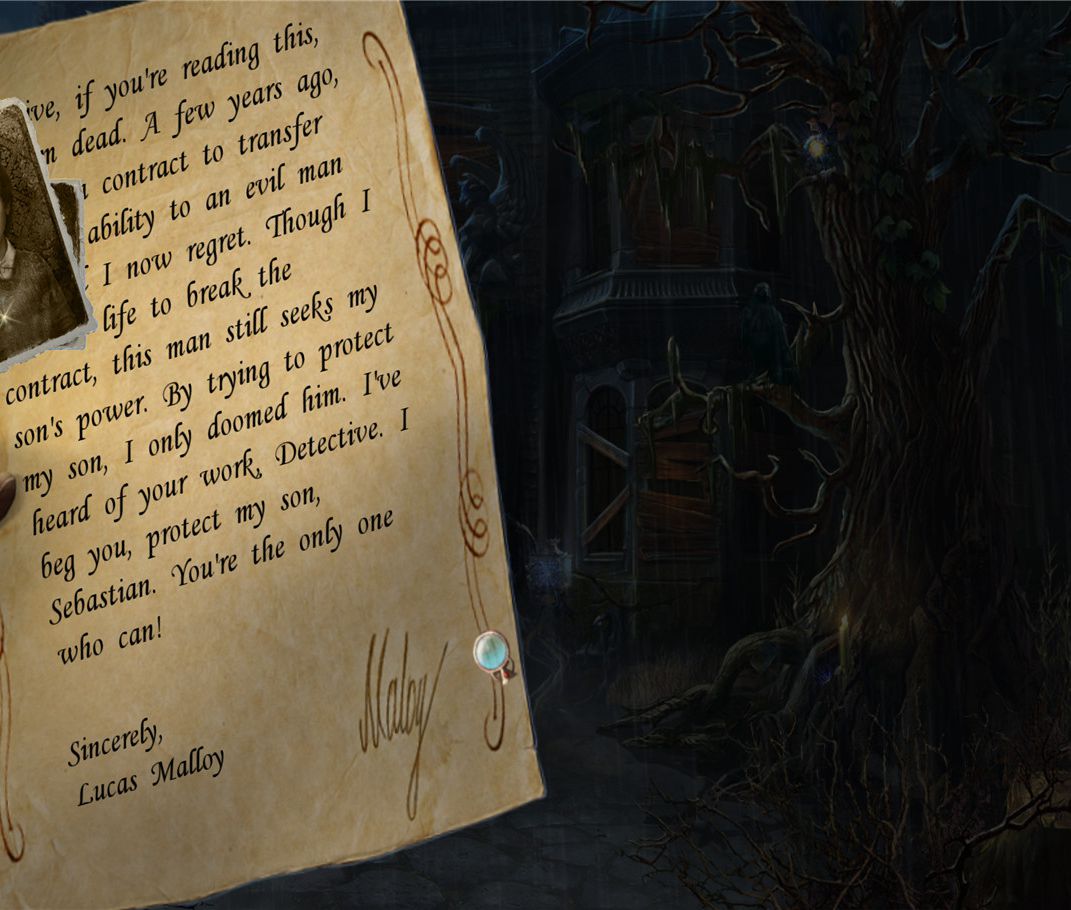 if you're reading this,
dead. A few years ago,
contract to transfer
ability to an evil man
I now regret. Though I
life to break the
contract, this man still seeks my
son's power. By trying to protect
my son, I only doomed him. I've
heard of your work, Detective. I
beg you, protect my son,
Sebastian. You're the only one
who can!
Malloy
Sincerely,
Lucas Malloy